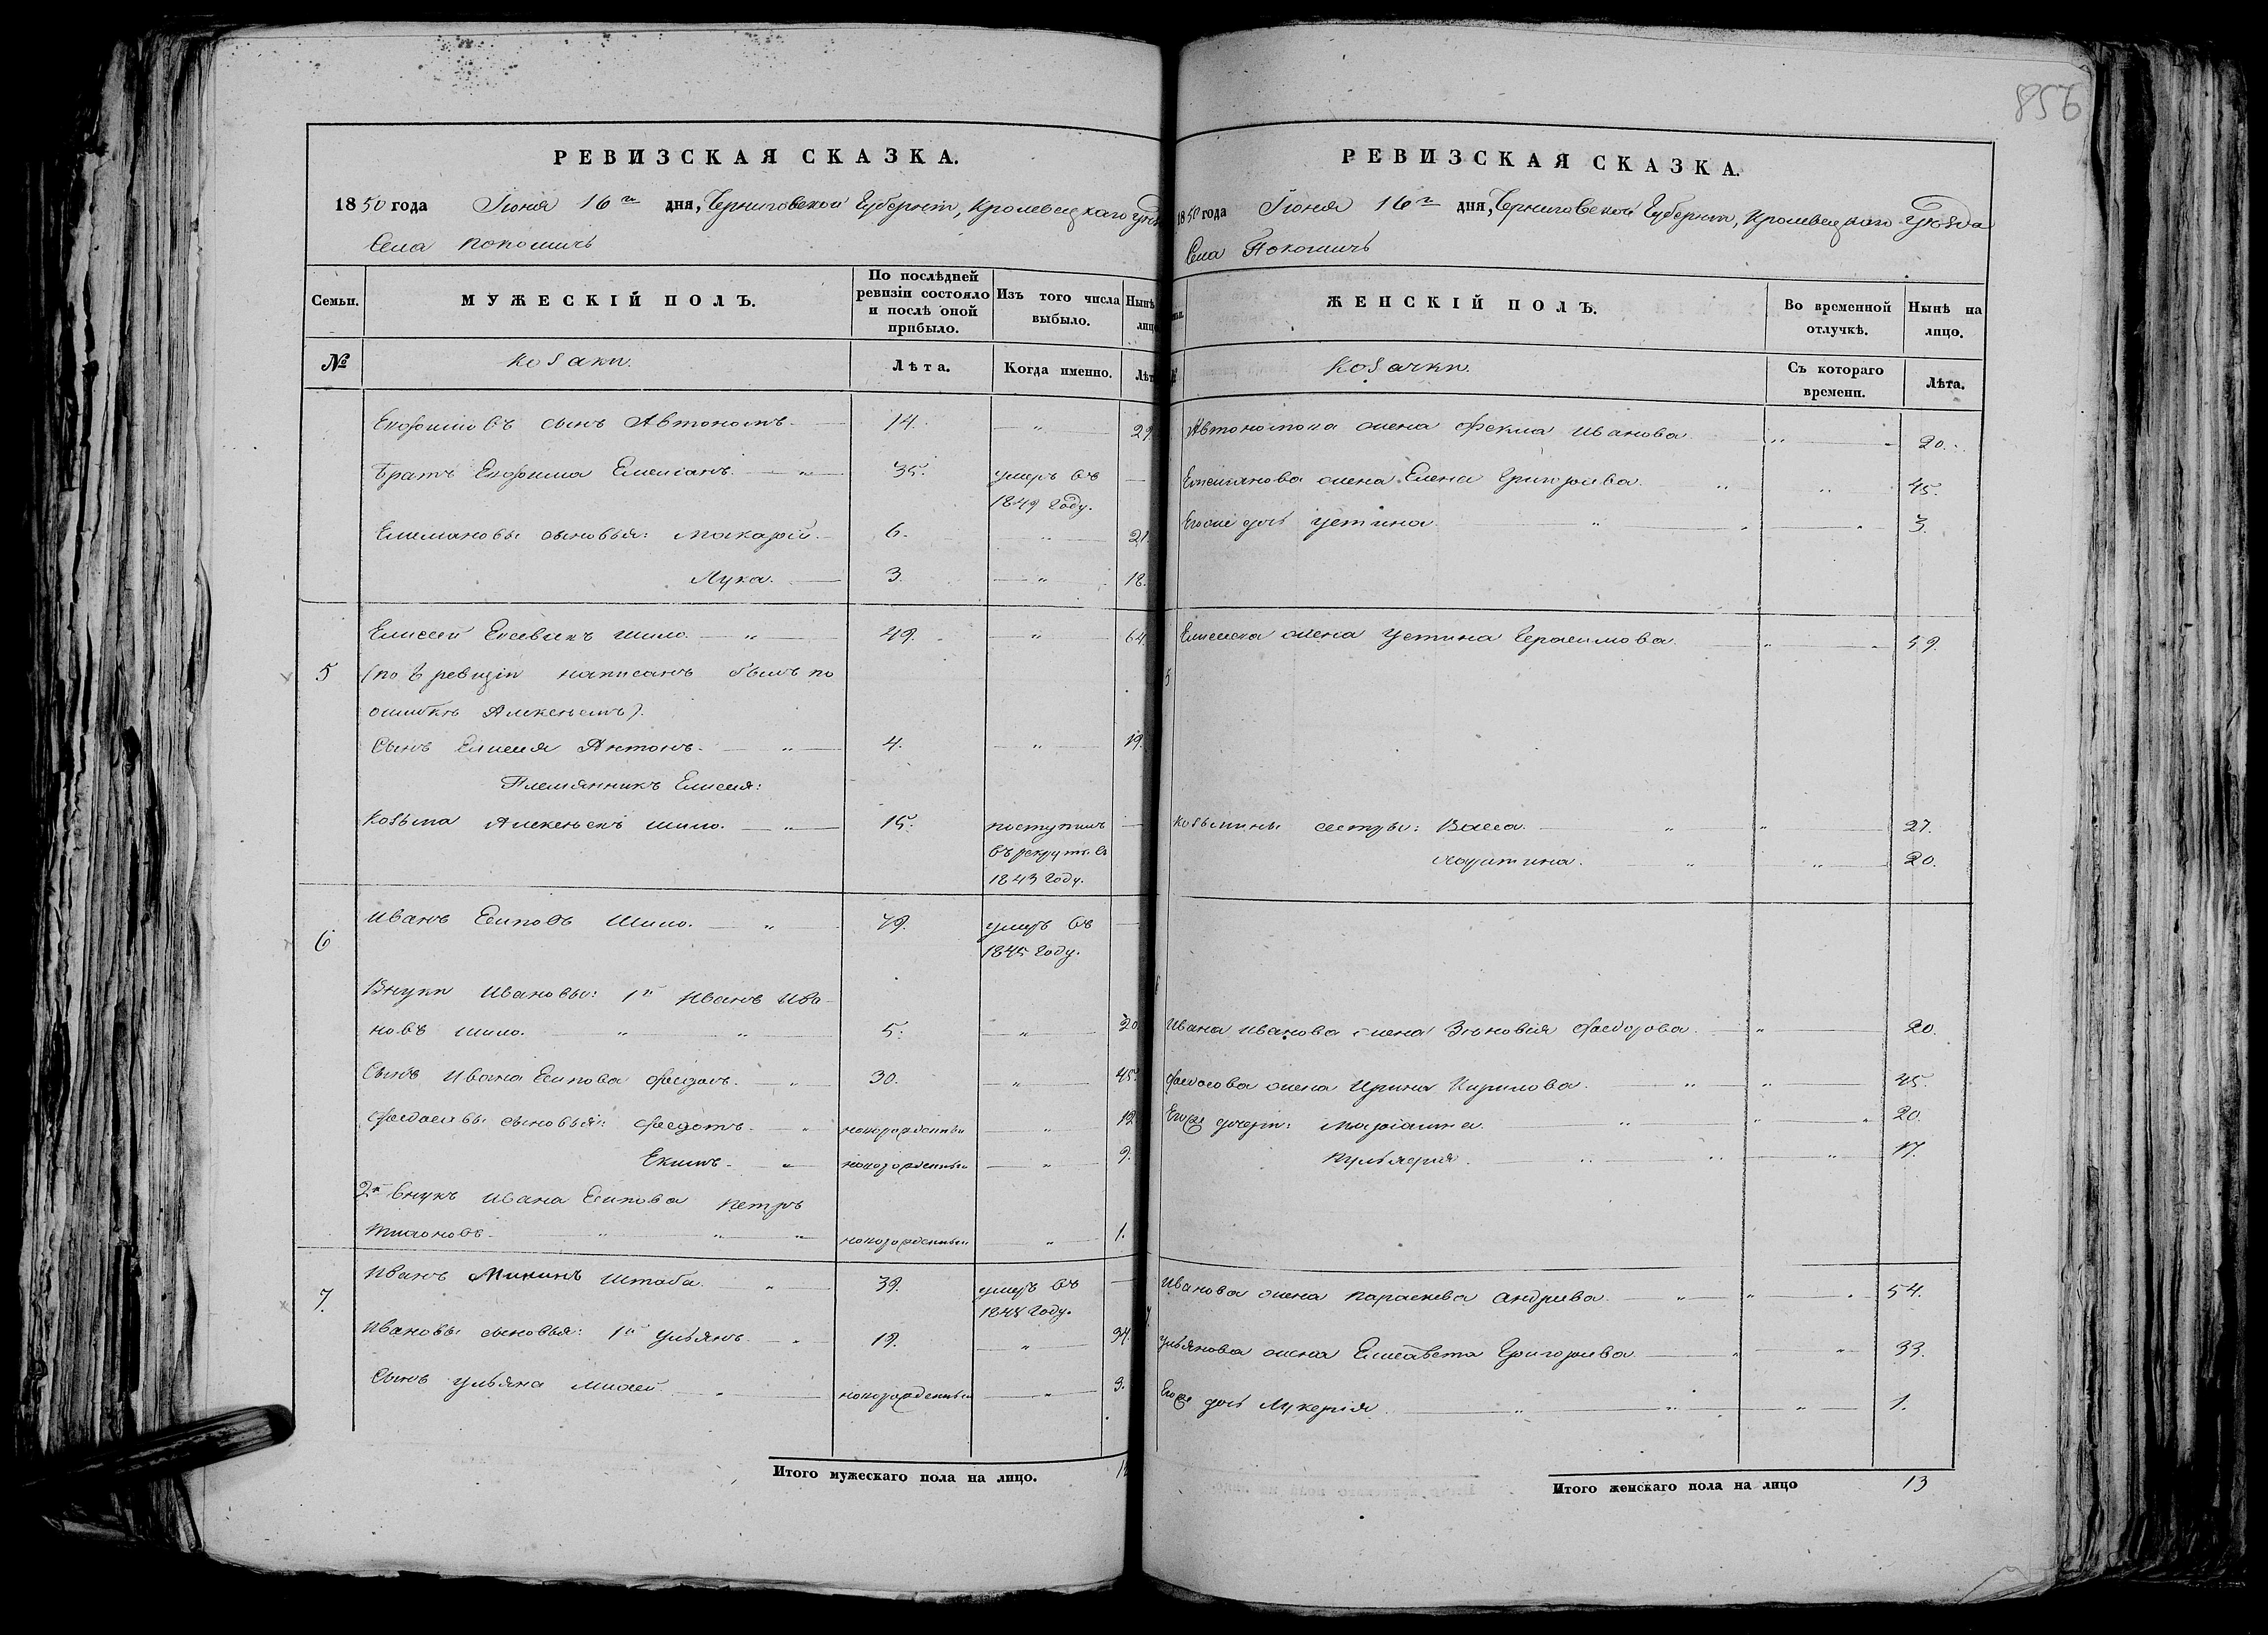 РЕВИЗСКАЯ СКАЗКА.
1850 года Іюня 16го дня, Черниговской Губерніи, Кролевецкаго уѣз
Села Покошичъ
Семьи.
МУЖЕСКІЙ ПОЛЪ.
По послѣдней ревизіи состояло и послѣ оной прибыло.
Изъ того числа выбыло.
Нынѣ лицо
№
Козаки.
Лѣта.
Когда именно.
Лѣт
Евфимовъ сынъ Автономъ. 14. " 29
Братъ Евфима Емеліанъ. " 35. умеръ въ
1849 году.
Емеліановы сыновья: Макарій. 6. " 21.
Лука. 3. " 18.
5
Елисей Евсевіевъ Шило. " 49. " 64
(по 8 ревизіи написанъ былъ по
ошибкѣ Алексѣемъ).
Сынъ Елисея Антонъ. " 4. " 19.
Племянникъ Елисея:
Козьма Алексѣевъ Шило. " 15. поступилъ
въ рекруты въ
1843 году.
6
Иванъ Есиповъ Шило. " 79. умеръ въ
1845 году.
Внуки Ивановы: 1й Иванъ Ива-
новъ Шило. " " 5. " 20
Сынъ Ивана Есипова Федосъ. " 30. " 45.
Федосовы сыновья: Федотъ. " новорожденный " 12.
Екимъ. " новорожденный " 9.
2й внукъ Ивана Есипова Петръ
Тихоновъ. " " " новорожденный " 1.
7.
Иванъ Мининъ Штаба. " 39. умеръ въ
1848 году.
Ивановы сыновья: 1й Ульянъ. " 19. " 34.
Сынъ Ульяна Михей. " новорожденный " 3.
Итого мужескаго пола на лицо. 1
856
РЕВИЗСКАЯ СКАЗКА.
1850 года Іюня 16го дня, Черниговской Губерніи, Кролевецкаго уѣзда
Села Покошичъ
ЖЕНСКІЙ ПОЛЪ.
Во временной отлучкѣ.
Нынѣ на лицо.
Козачки.
Съ котораго времени.
Лѣта.
Автономова жена Фекла Иванова " 20.
Емеліянова жена Елена Григорьева. " " 45.
Его же дочь Устина. " 3.
5
Елисеева жена Устина Герасимова. " 59.
Козьмины сестры: Васса. " " 27.
Харитина. " " 20.
Ивана Иванова жена Зѣновія Федорова. " 20.
Федосова жена Ирина Кирилова. " " 45.
Его же дочери: Маріамна. " " 20.
Пульхерія. " " " 17.
7.
Иванова жена Параскева Андреева. " " 54.
Ульянова жена Елисавета Григорьева. " " 33.
Его же дочь Лукерія. " " " 1.
Итого женскаго пола на лицо 13